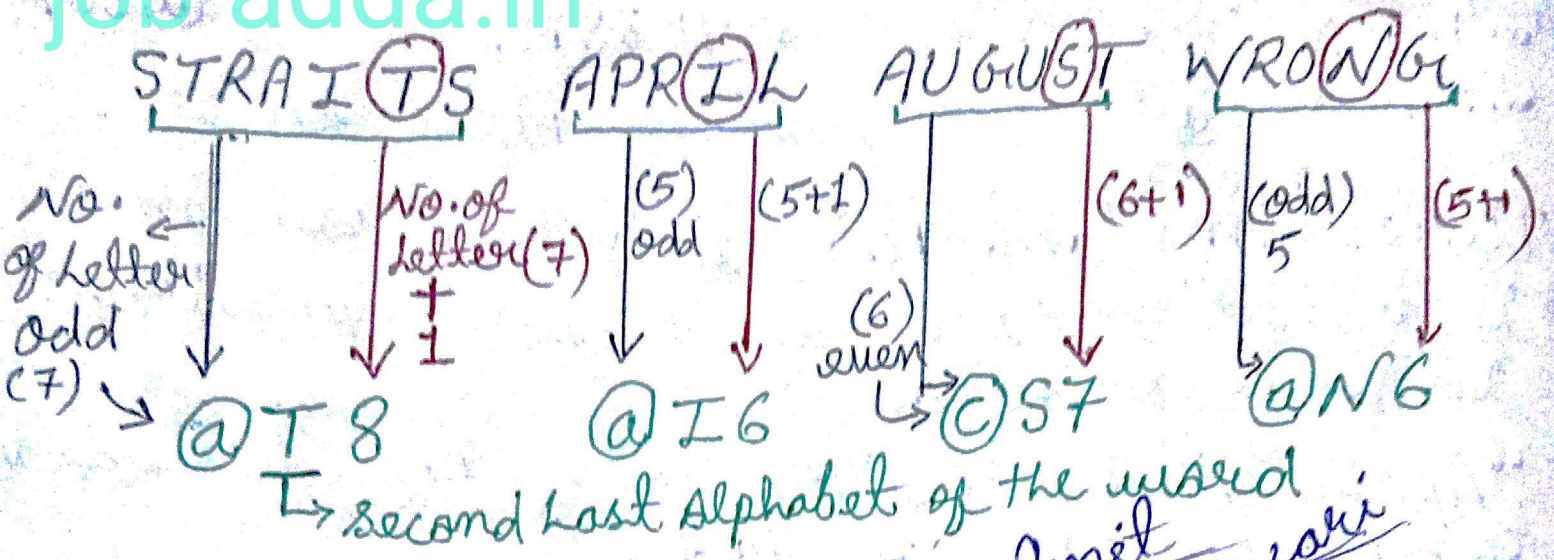 job adda.in
STRAITS APRIL AUGUST WRONG
No. of Letter odd (7)
No. of Letter (7) + 1
(5) odd
(5+1)
(6) even
(6+1)
(odd) 5
(5+1)
@T8 @I6 ©S7 @N6
Second Last Alphabet of the word